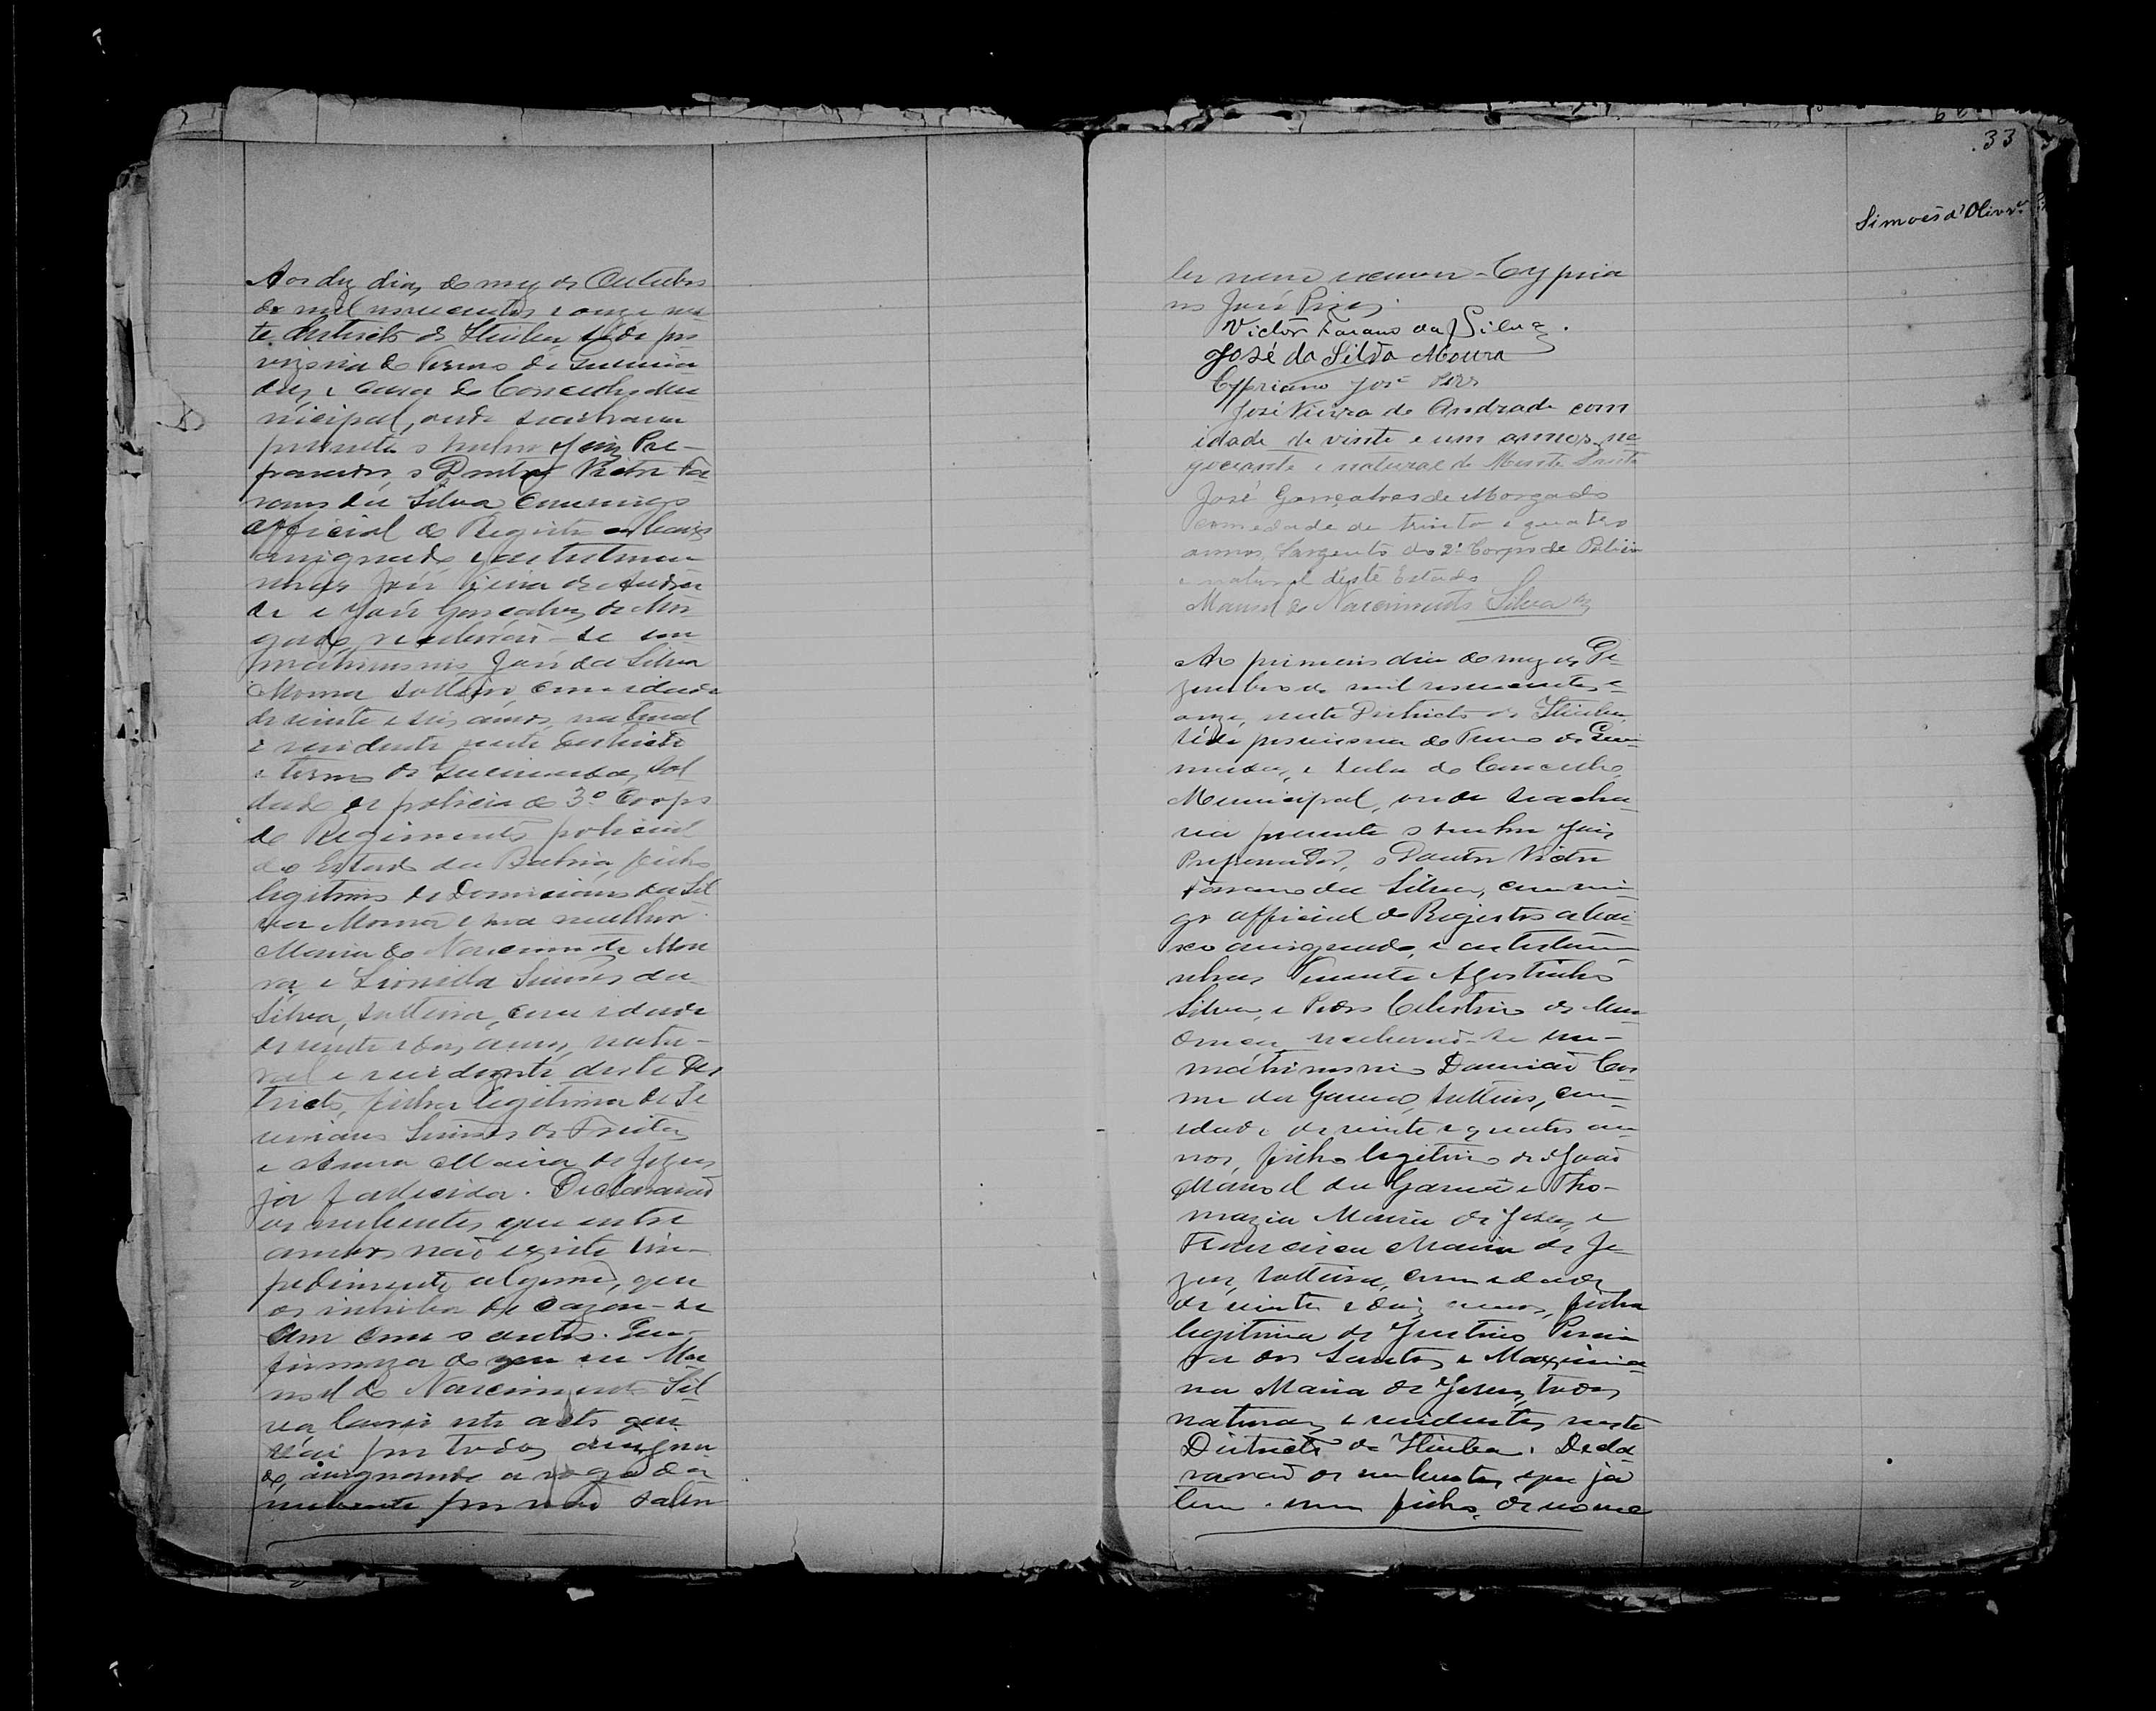 Aos dez dias do mez de Outubro
de mil novecentos e onze nes
te Districto de Itiuba, séde pro
vizoria do Termo de Queima
das, e caza do Concelho Mu
nicipal, onde se achava
presente o senhor Juiz Pre-
parador, o Doutor Victor Fa
rano da Silva commigo
official do Registro abaixo
assignado e as testemu
nhas José Vieira de Andra
de e José Gonçalves de Mor
gado, receberão-se em
matrimonio José da Silva
Moura solteiro, com idade
de vinte e seis annos, natural
e residente neste Districto
e termo de Queimadas, sol
dado de policia do 3º Corpo
do Regimento policial
do Estado da Bahia, filho
legitimo de Domiciano da Sil
va Moura e sua mulher
Maria do Nascimento Mou
ra, e Lionilla Simões da
Silva, solteira, com idade
de vinte e dois annos, natu-
ral e residente deste Dis
tricto, filha legitima de
Simões de Freitas
e Anna Maria de Jezus
já fallecida. Declararão
os nubentes que entre
ambos não existe im-
pedimento algum, que
os inhiba de cazar-se
um com o outro. Em
firmeza do que eu Ma
noel do Nascimento Sil
va lavrei este acto que
vai por todos assigna
do, assignando a rogo da
nubente por não saber
33
Simoes d'Olivrª
ler nem escrever Cypria
no José Pires.
Victor Farano da Silva.
José da Silva Moura
Cypriano José Pires
José Vieira de Andrade com
idade de vinte e um annos, ne
gociante e natural de Monte Santo
José Gonçalves de Morgado
com edade de trinta e quatro
annos, Sargento do 2º Corpo de Policia
e natural deste Estado
Manoel do Nascimento Silva
Ao primeiro dia do mez de De
zembro de mil novecentos e
onze, neste Districto de Itiuba,
séde provisoria do Termo de Quei
madas, e sala do Concelho
Municipal, onde se acha
va presente o senhor Juiz
Preparador, o Doutor Victor
Farano da Silva, commi
go official do Registro abai
xo assignado, e as testemu
nhas Vicente Agostinho
Silva, e Pedro Celestino de
receberão-se em
matrimonio Damião Cos
me da Gama, solteiro, com
idade de vinte e quatro an
nos, filho legitimo de João
Manoel da Gama e Tho-
mazia Maria de Jesus, e
Francisca Maria de Je
zus, solteira, com idade
de vinte e dois annos, filha
legitima de Justino Perei
ra dos Santos e Maximia
na Maria de Jesus, todos
naturaes e residentes neste
Districto de Itiuba. Decla
rarão os nubentes que já
tem um filho de nome